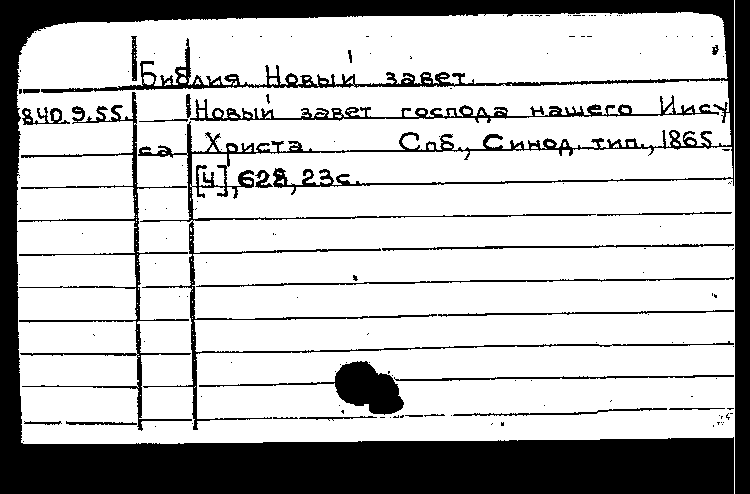 Библия. Новый завет.
8.40.9.55. Новый завет господа нашего Иису
са Христа. Спб., Синод. тип., 1865.
[4], 628, 23с.